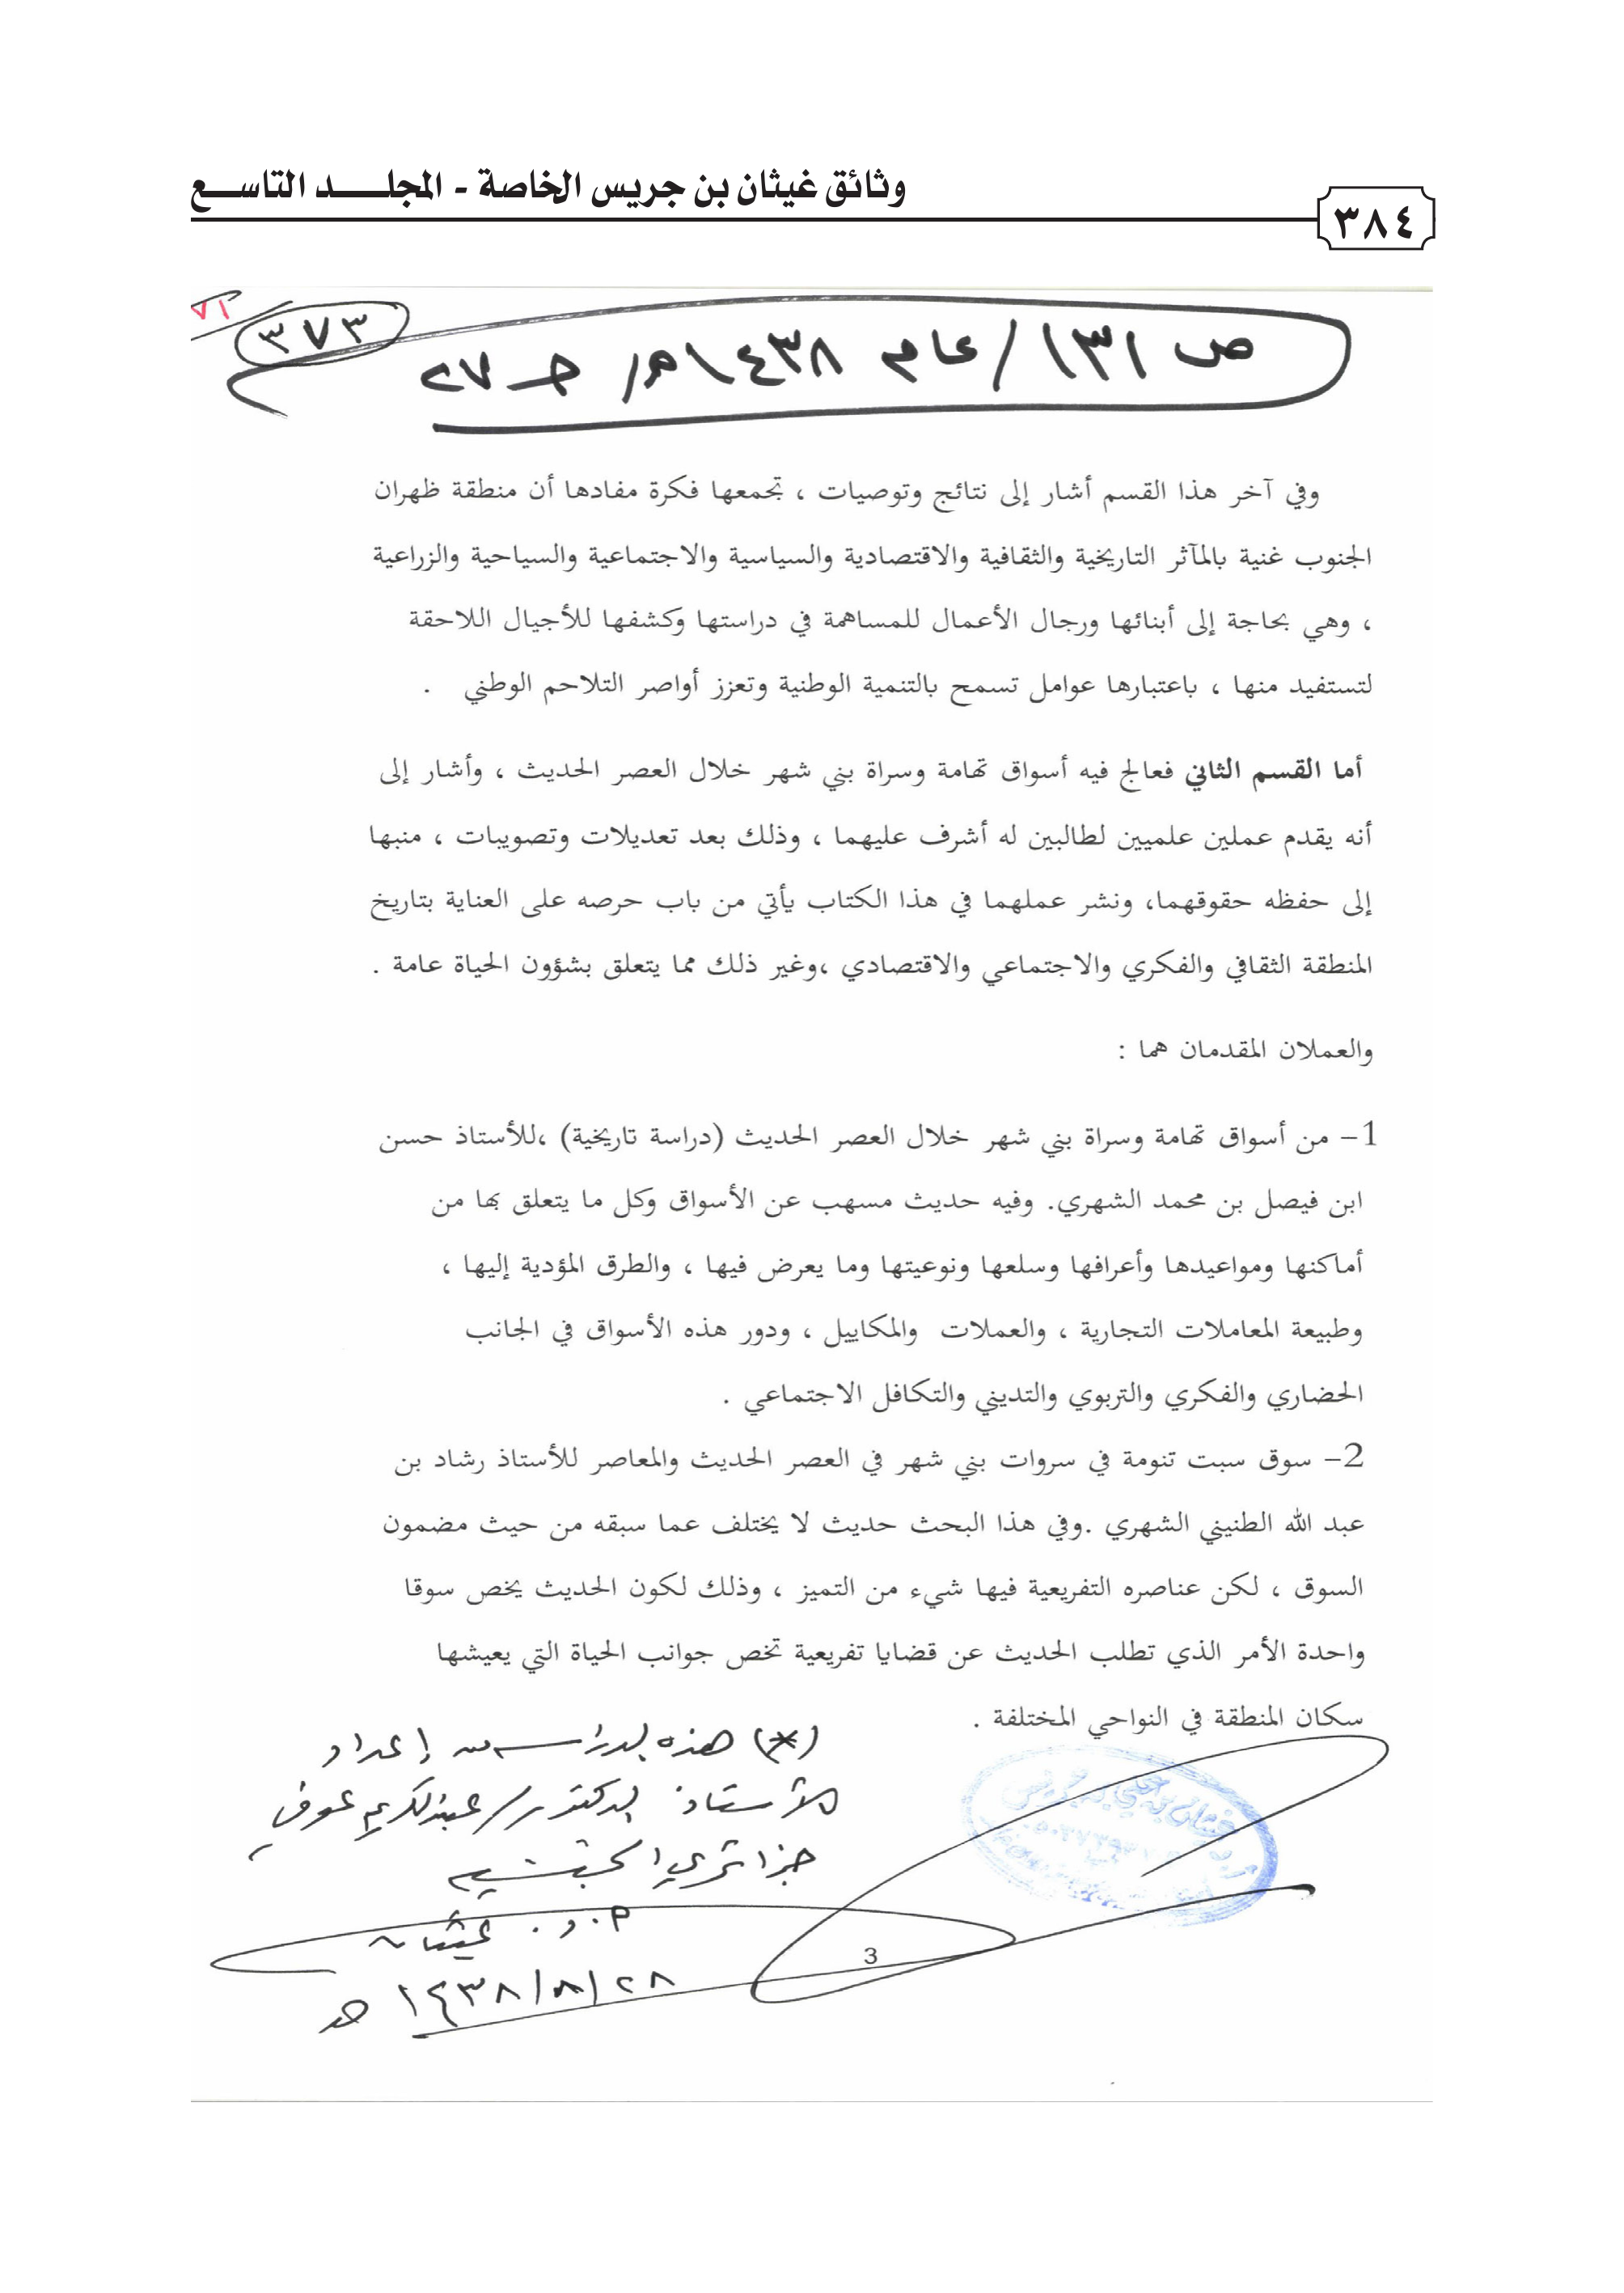 وثائق غيثان بن جريس الخاصة - المجلـــــد التاســـع
٣٨٤
٧١
٣٧٣
ص ١٣١/ عام ١٤٣٨هـ/ جـ ٢٧
وفي آخر هذا القسم أشار إلى نتائج وتوصيات ، تجمعها فكرة مفادها أن منطقة ظهران
الجنوب غنية بالمآثر التاريخية والثقافية والاقتصادية والسياسية والاجتماعية والسياحية والزراعية
، وهي بحاجة إلى أبنائها ورجال الأعمال للمساهمة في دراستها وكشفها للأجيال اللاحقة
لتستفيد منها ، باعتبارها عوامل تسمح بالتنمية الوطنية وتعزز أواصر التلاحم الوطني .
أما القسم الثاني فعالج فيه أسواق تهامة وسراة بني شهر خلال العصر الحديث ، وأشار إلى
أنه يقدم عملين علميين لطالبين له أشرف عليهما ، وذلك بعد تعديلات وتصويبات ، منبها
إلى حفظه حقوقهما، ونشر عملهما في هذا الكتاب يأتي من باب حرصه على العناية بتاريخ
المنطقة الثقافي والفكري والاجتماعي والاقتصادي ،وغير ذلك مما يتعلق بشؤون الحياة عامة .
والعملان المقدمان هما :
1- من أسواق تهامة وسراة بني شهر خلال العصر الحديث (دراسة تاريخية) ،للأستاذ حسن
ابن فيصل بن محمد الشهري. وفيه حديث مسهب عن الأسواق وكل ما يتعلق بها من
أماكنها ومواعيدها وأعرافها وسلعها ونوعيتها وما يعرض فيها ، والطرق المؤدية إليها ،
وطبيعة المعاملات التجارية ، والعملات والمكاييل ، ودور هذه الأسواق في الجانب
الحضاري والفكري والتربوي والتديني والتكافل الاجتماعي .
2- سوق سبت تنومة في سروات بني شهر في العصر الحديث والمعاصر للأستاذ رشاد بن
عبد الله الطنيني الشهري .وفي هذا البحث حديث لا يختلف عما سبقه من حيث مضمون
السوق ، لكن عناصره التفريعية فيها شيء من التميز ، وذلك لكون الحديث يخص سوقا
واحدة الأمر الذي تطلب الحديث عن قضايا تفريعية تخص جوانب الحياة التي يعيشها
سكان المنطقة في النواحي المختلفة .
(*) هذه الدراسة من إعداد
الأستاذ الدكتور/ عبدالكريم عوفي
جزائري الجنسية
م. د. غيثان
٢٨/٨/١٤٣٨ هـ
3